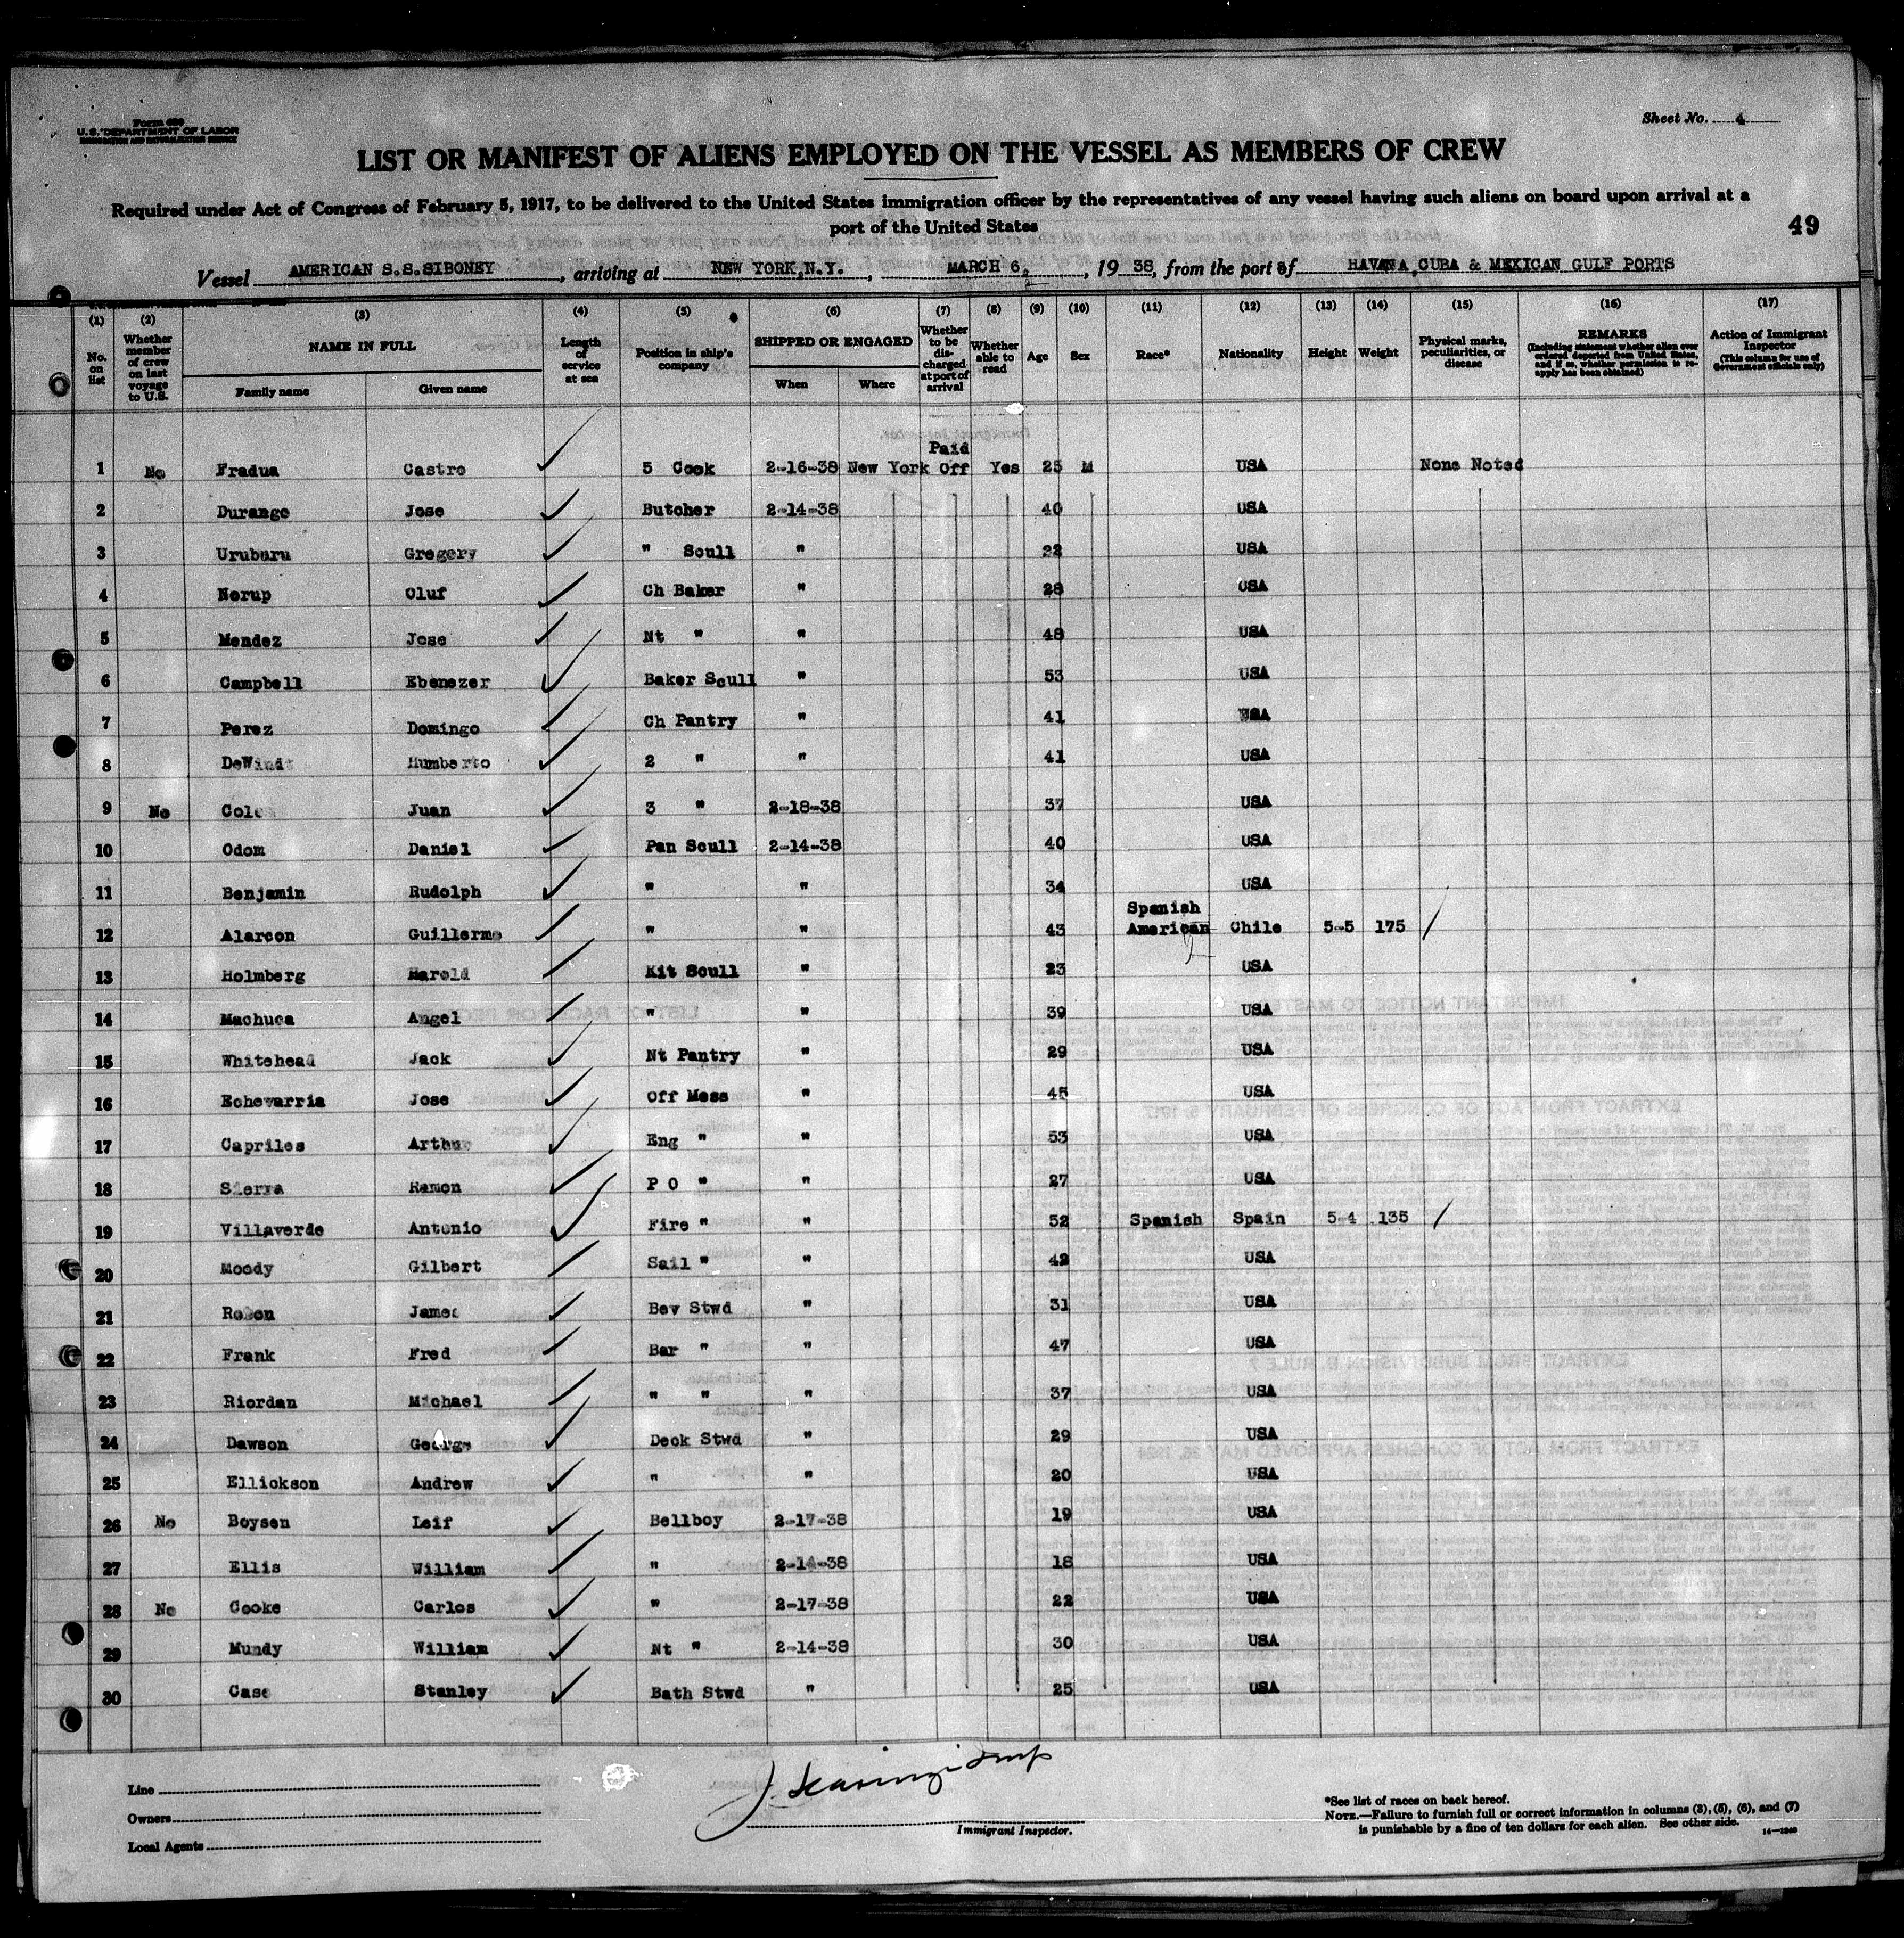 Form 680
U. S. DEPARTMENT OF LABOR
IMMIGRATION AND NATURALIZATION SERVICE
Sheet No. 4
LIST OR MANIFEST OF ALIENS EMPLOYED ON THE VESSEL AS MEMBERS OF CREW
Required under Act of Congress of February 5, 1917, to be delivered to the United States immigration officer by the representatives of any vessel having such aliens on board upon arrival at a
port of the United States
49
Vessel AMERICAN S.S.SIBONEY, arriving at NEW YORK,N.Y., MARCH 6, 1938, from the port of HAVANA, CUBA & MEXICAN GULF PORTS
(1) (2) (3) (4) (5) (6) (7) (8) (9) (10) (11) (12) (13) (14) (15) (16) (17)
No. on list Whether member of crew on last voyage to U.S. NAME IN FULL Family name Given name Length of service at sea Position in ship's company SHIPPED OR ENGAGED When Where Whether to be discharged at port of arrival Whether able to read Age Sex Race* Nationality Height Weight Physical marks, peculiarities, or disease REMARKS (Including statement whether alien ever ordered deported from United States, and if so, whether permission to reapply has been obtained) Action of Immigrant Inspector (This column for use of Government officials only)
1 No Fradua Castro 5 Cook 2-16-38 New York Paid Off Yes 25 M USA None Noted
2 Durango Jose Butcher 2-14-38 40 USA
3 Uruburu Gregory " Scull " 22 USA
4 Norup Oluf Ch Baker " 28 USA
5 Mendez Jose Nt " " 48 USA
6 Campbell Ebenezer Baker Scull " 53 USA
7 Perez Domingo Ch Pantry " 41 USA
8 DeWindt Humberto 2 " " 41 USA
9 No Juan 3 " 2-18-38 37 USA
10 Odom Daniel Pan Scull 2-14-38 40 USA
11 Benjamin Rudolph " " 34 USA
12 Alarcon Guillermo " " 43 Spanish American Chile 5-5 175 /
13 Holmberg Harold Kit Scull " 23 USA
14 Machuca Angel " " 39 USA
15 Whitehead Jack Nt Pantry " 29 USA
16 Echevarria Jose Off Mess " 45 USA
17 Capriles Arthur Eng " " 53 USA
18 Sierra Ramon P O " " 27 USA
19 Villaverde Antonio Fire " " 52 Spanish Spain 5-4 135 /
20 Moody Gilbert Sail " " 42 USA
21 James Bev Stwd " 31 USA
22 Frank Fred Bar " " 47 USA
23 Riordan Michael " " " 37 USA
24 Dawson George Deck Stwd " 29 USA
25 Ellickson Andrew " " 20 USA
26 No Boysen Leif Bellboy 2-17-38 19 USA
27 Ellis William " 2-14-38 18 USA
28 No Cooke Carlos " 2-17-38 22 USA
29 Mundy William Nt " 2-14-38 30 USA
30 Case Stanley Bath Stwd " 25 USA
Line
Owners
Local Agents
Immigrant Inspector.
*See list of races on back hereof.
NOTE.—Failure to furnish full or correct information in columns (3), (5), (6), and (7)
is punishable by a fine of ten dollars for each alien. See other side.